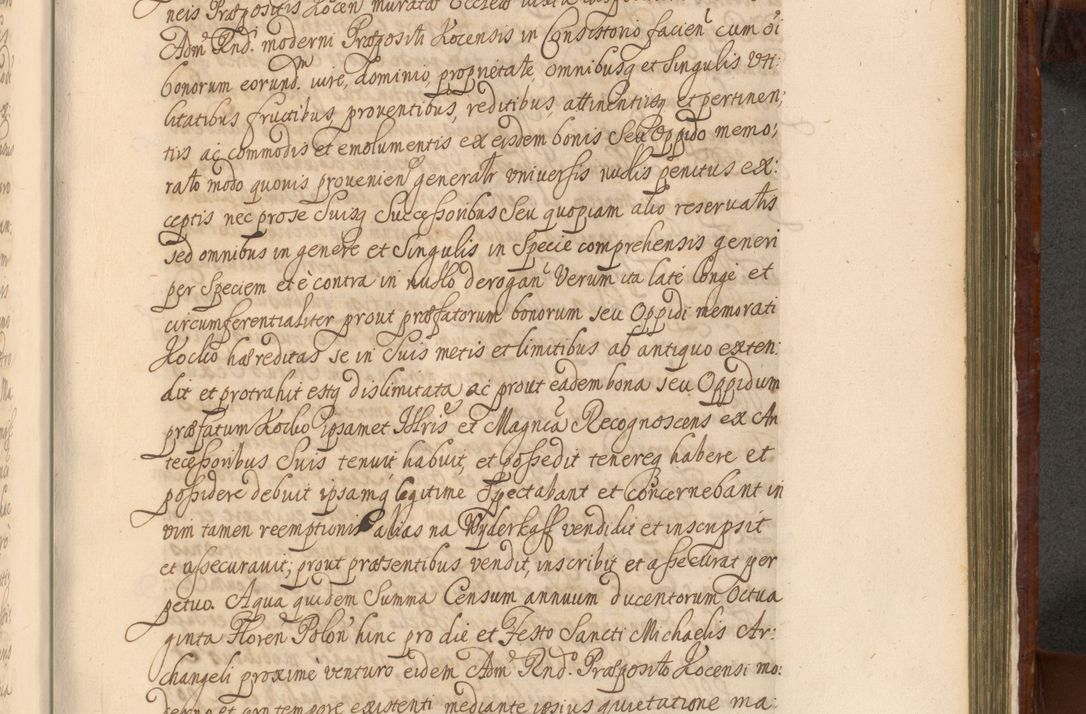 neis Præpositis Kocen muratæ Ecclesiæ
Adm Rnd. moderni Præpositi Kocensis in Consistorio facien cum oi
bonorum eorund. iure, dominio, proprietate omnibusq et Singulis Uti
litatibus fructibus, proventibus, reditibus, attinentijsq et pertinen;
tiis ac commodis et emolumentis ex eisdem bonis Seu Oppido memo;
rato modo quovis provenien generalr universis nullis penitus ex:
ceptis nec pro se Suisq Successoribus Seu quopiam alio reservatis
sed omnibus in genere et Singulis in Specie comprehensis generi
per Speciem et è contra in nullo derogan Verum ita late longe et
circumferentialiter prout præfatorum bonorum seu Oppidi memorati
Kocko hæreditas se in Suis metis et limitibus ab antiquo exten:
dit et protrahit estq dislimitata ac prout eadem bona seu Oppidum
præfatum Kocko ipsamet Illris et Magnca Recognoscens ex An
tecessoribus Suis tenuit, habuit, et possedit tenereq habere et
possidere debuit ipsamq legitime Spectabant et concernebant in
vim tamen reemptionis alias na Wyderkaff vendidit et inscripsit
et assecuravit; prout præsentibus vendit, inscribit et assecurat per
petuo. A qua quidem Summa Censum annuum ducentorum Octua
ginta Floren Polon hinc pro die et Festo Sancti Michaelis Ar:
changeli proximè venturo eidem Adm Rnd. Præposito Kocensi mo:
derno et pro tempore existenti mediante ipsius quietatione ma: